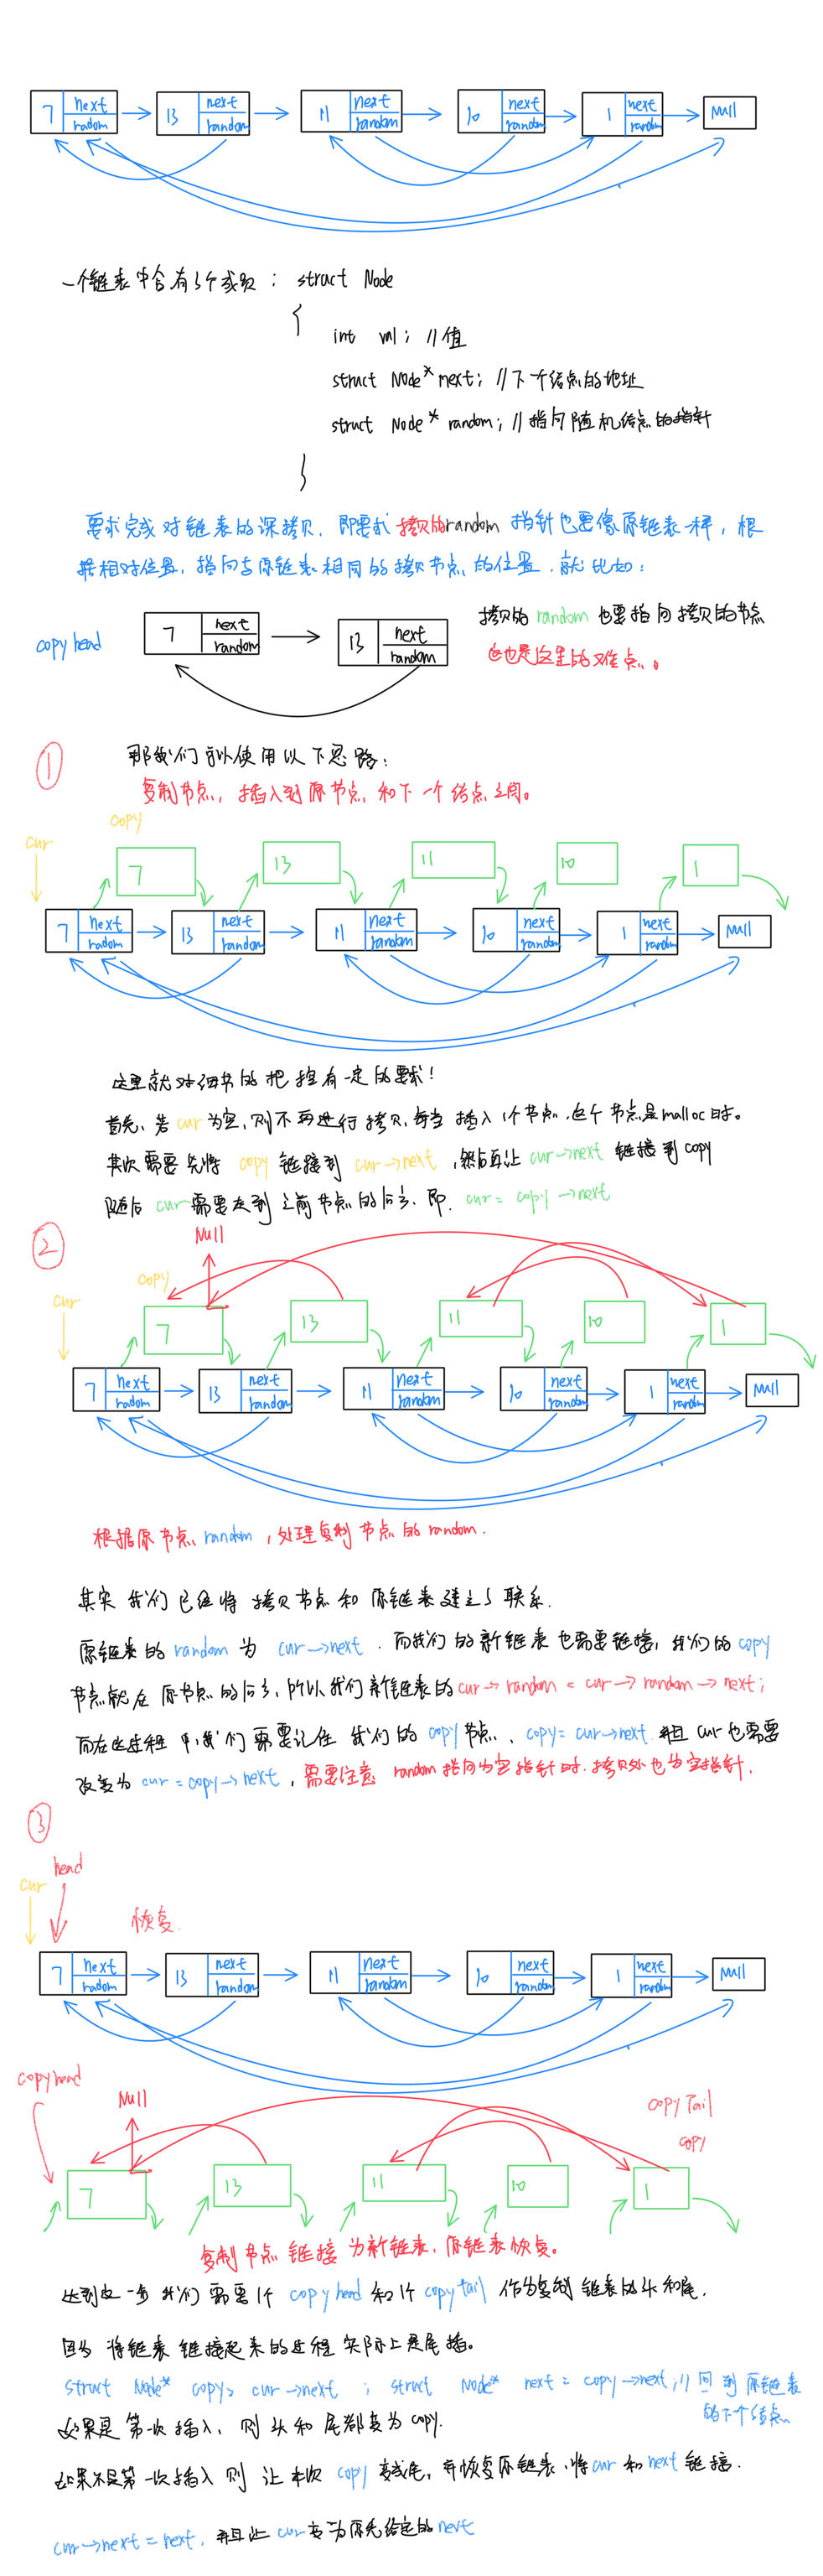 7 next 13 next 11 next 10 next 1 next Null
radom random random random random
一个链表中含有3个成员： struct Node
{
int val; //值
struct Node* next; //下个结点的地址
struct Node* random; //指向随机结点的指针
}
要求完成对链表的深拷贝，即要求拷贝的random 指针也要像原链表一样，根
据相对位置，指向与原链表相同的拷贝节点的位置．就比如：
copy head 7 next 13 next
random random
拷贝的random也要指向拷贝的节点
这也是这里的难点。
① 那我们可以使用以下思路：
复制节点，插入到原节点和下一个结点之间。
copy
cur
7 13 11 10 1
7 next 13 next 11 next 10 next 1 next Null
radom random random random random
这里就对细节的把控有一定的要求！
首先，若cur为空，则不再进行拷贝，每当插入1个节点，这个节点是malloc的。
其次需要先将 copy 链接到 cur→next，然后再让 cur→next 链接到 copy
随后 cur需要走到之前节点的后方．即．cur = copy →next
② Null
copy
cur
7 13 11 10 1
7 next 13 next 11 next 10 next 1 next Null
radom random random random random
根据原节点random，处理复制节点的random．
其实我们已经将拷贝节点和原链表建立了联系．
原链表的random为 cur→next．而我们的新链表也需要链接，我们的copy
节点就在原节点的后方，所以我们新链表的cur→random = cur→random→next;
而在这过程中，我们需要记住我们的copy节点．copy= cur→next 并且cur也需要
改变为 cur = copy→next，需要注意 random指向为空指针时．拷贝处也为空指针．
③
head
cur
恢复．
7 next 13 next 11 next 10 next 1 next Null
radom random random random random
copyhead Null copyTail
copy
7 13 11 10 1
复制节点链接为新链表，原链表恢复。
达到这一步我们需要1个 copyhead 和1个 copytail 作为复制链表的头和尾．
因为将链表链接起来的过程实际上是尾插。
struct Node* copy= cur→next ; struct Node* next = copy→next;//回到原链表
的下个结点
如果是第一次插入，则头和尾都变为copy．
如果不是第一次插入则让本次 copy 变成尾，并恢复原链表，将cur和next链接．
cur→next = next，并且让 cur变为原先给定的next